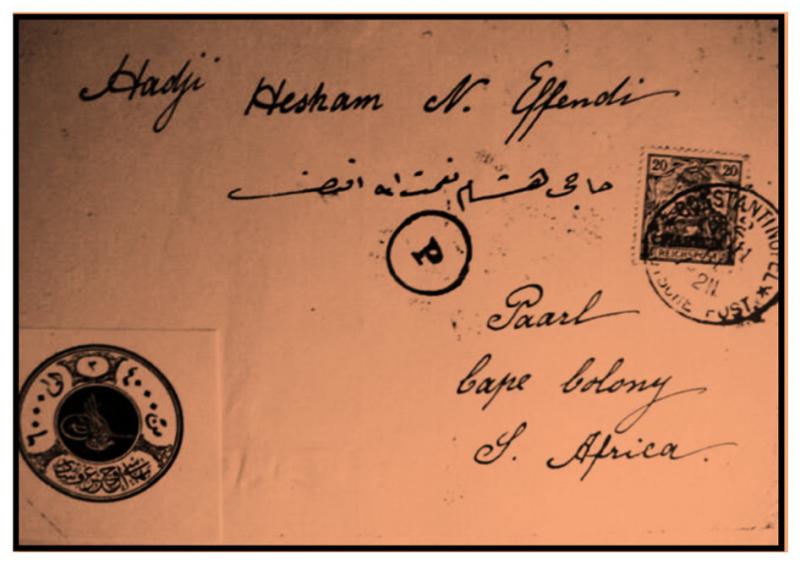 Hadji Hesham N. Effendi
حاجی هشام نعمت الله افندی
20 20
REICHSPOST
CONSTANTINOPEL
2/11
POST
P
Paarl
Cape Colony
S. Africa.
٣